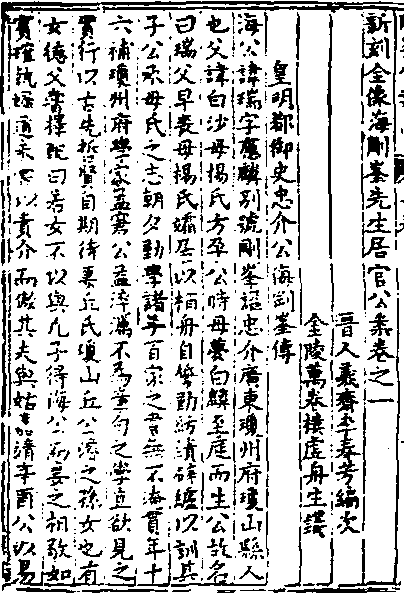 新刻全像海剛峯先生居官公案卷之一
晉人羲齋李春芳編次
金陵萬卷樓虛舟生鐫
皇明都御史忠介公海剛峯傳
海公諱瑞字應麟別號剛峯謚忠介廣東瓊州府瓊山縣人
也父諱白沙母楊氏方孕公時母夢白麟至庭而生公故名
曰瑞父早喪母楊氏孀居以栢舟自誓勤紡績辟纑以訓其
子公承母氏之志朝夕勤學諸子百家之書無不淹貫年十
六補瓊州府學家益窶公益淬濿不為章句之學直欲見之
實行以古先哲賢自期待妻丘氏瓊山丘公濬之孫女也有
女德父嘗擇配曰若女不以與凡子得海公而妻之相敬如
賓確執婦道未嘗以貴介而傲其夫與姑嘉靖辛酉公以易